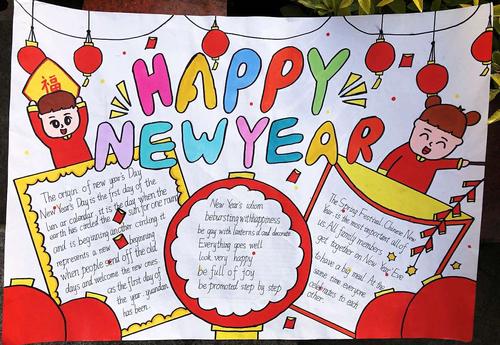 HAPPY
NEW YEAR
福
The origin of new year's Day
New Year's Day is the first day of the
lunar calendar. it is the day when the
earth has circled the sun for one round
and is beginning another circling it
represents a new beginning
when people send off the old
days and welcome the new ones
as the first day of
the year. yuandan
has been.
New Year's idiom
be bursting with happiness
be gay with lanterns and decorate
Everything goes well
look very happy
be full of joy
be promoted step by step
The Spring Festival, Chinese New
Year is the most important all of
us All family members
get together on New Year Eve
to have a big meal At the
same time everyone
celebrates to each
other.